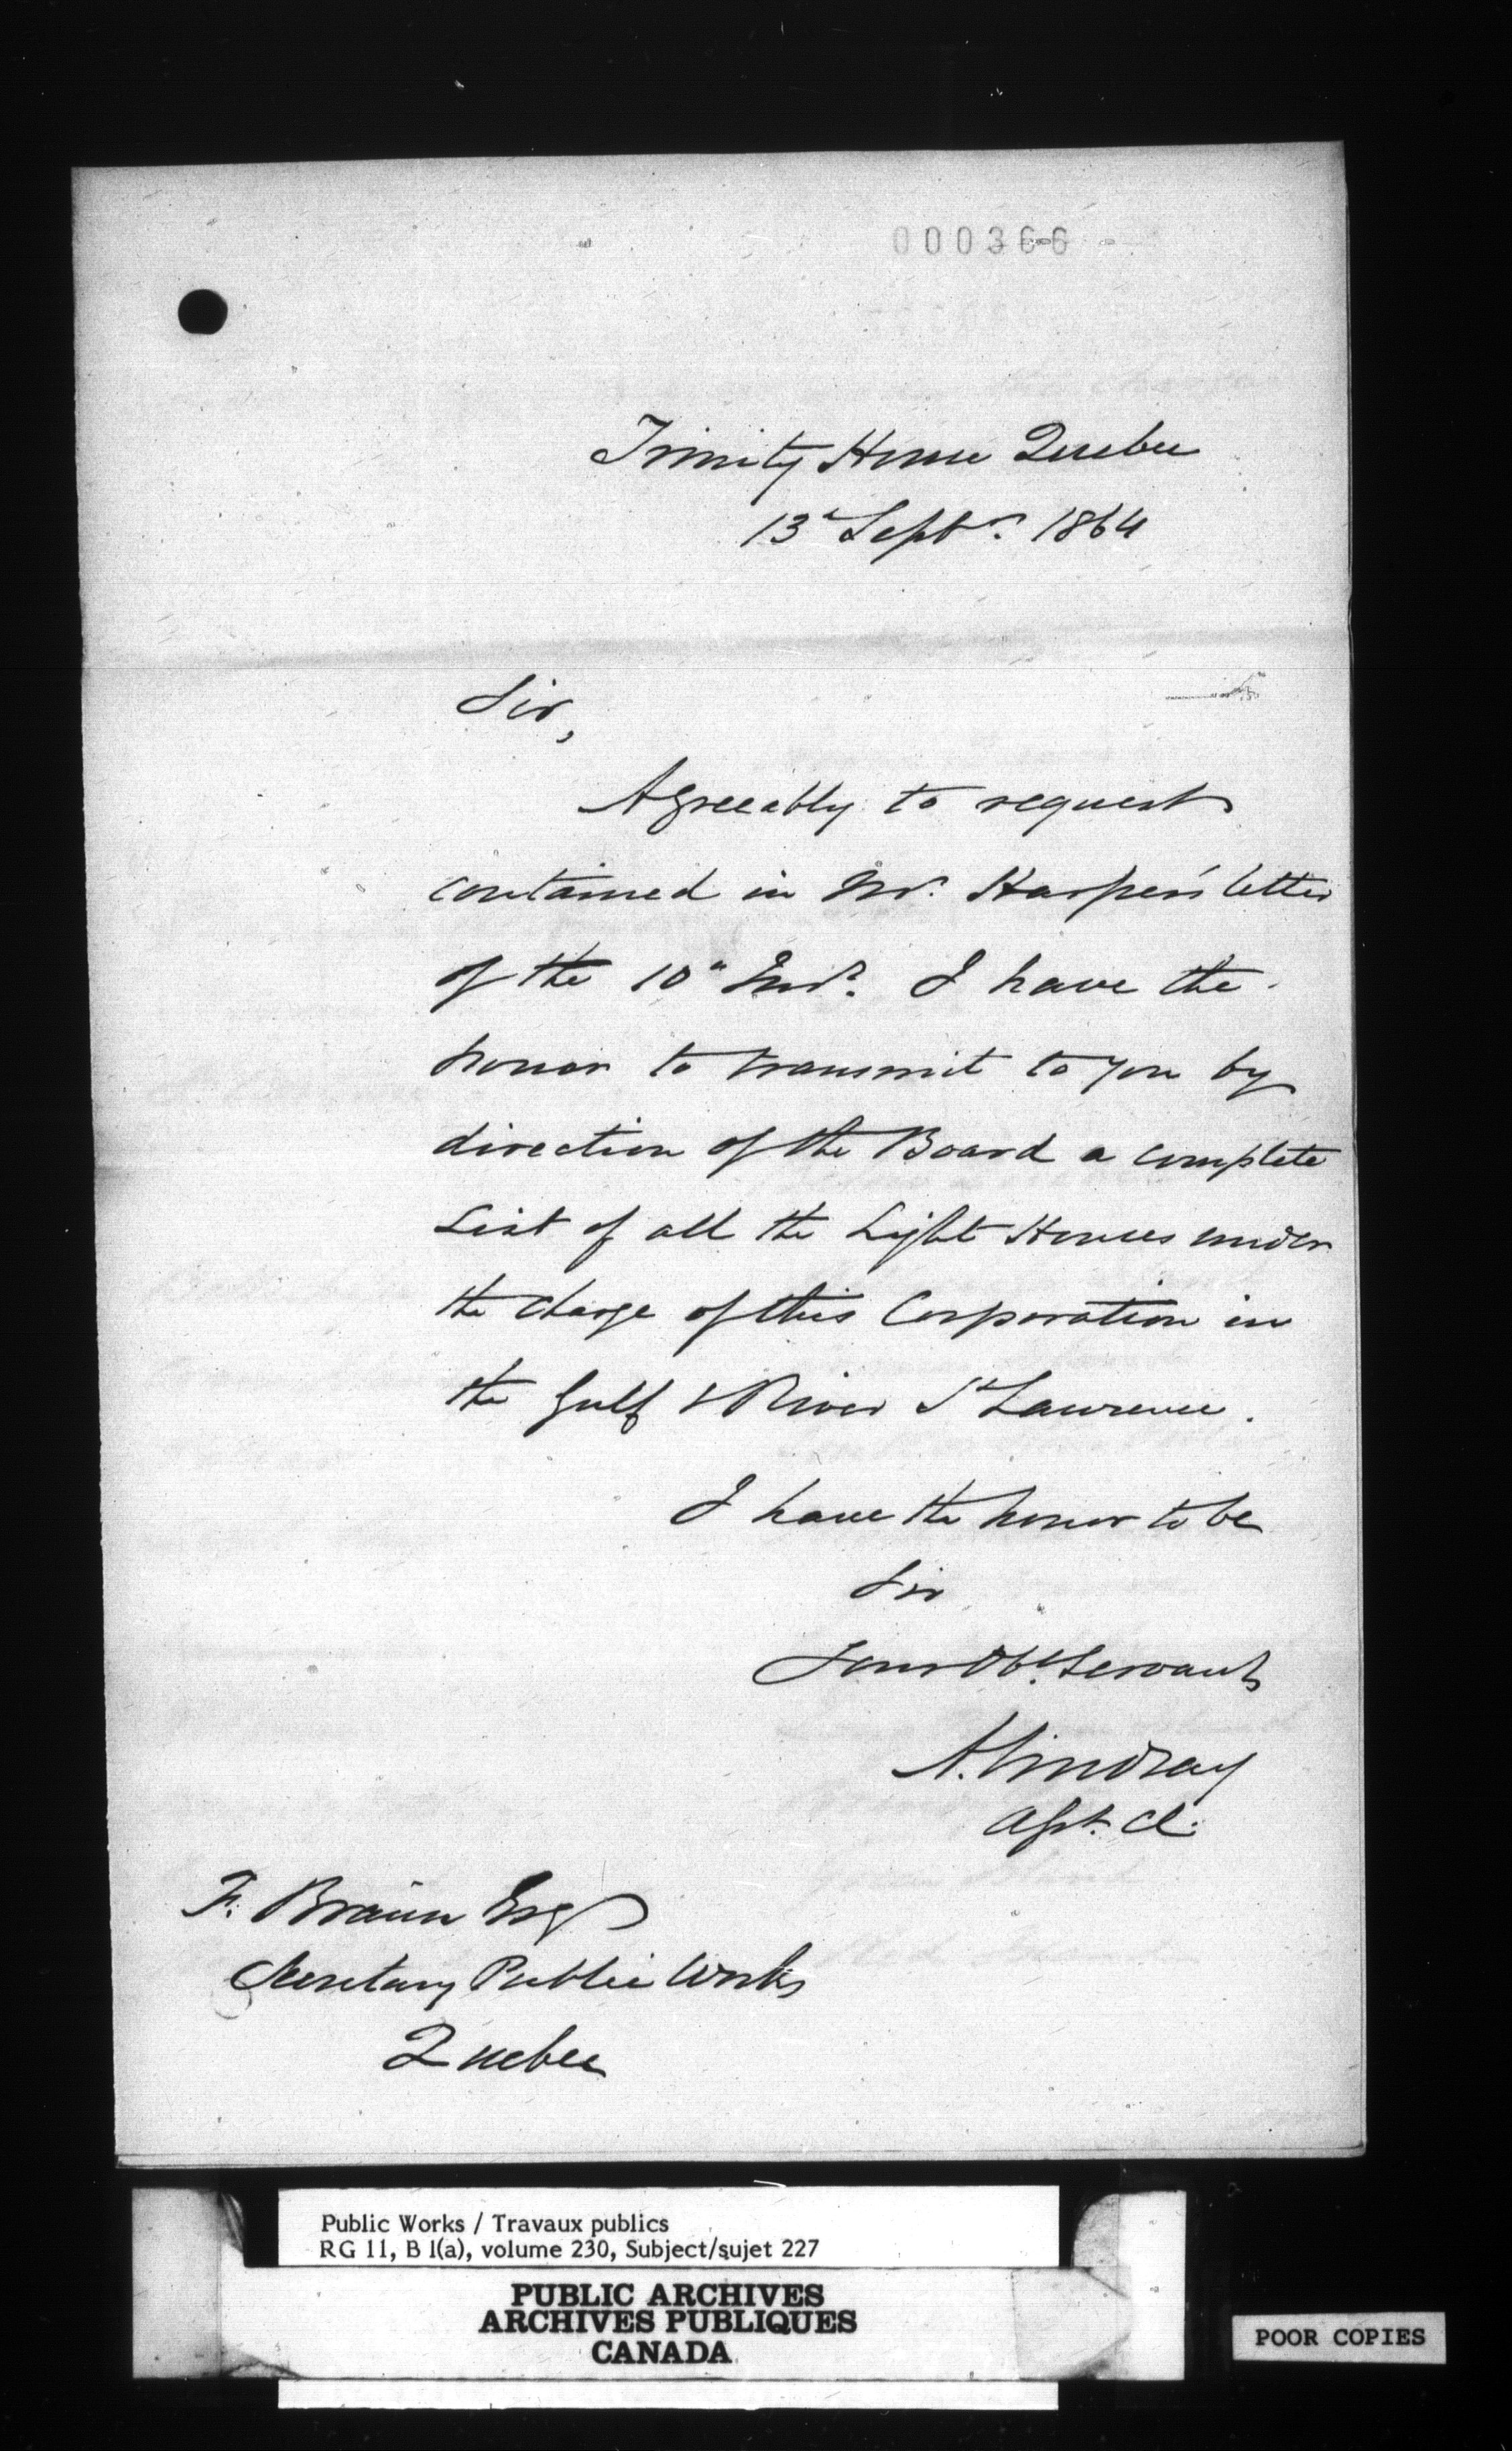 000366
Trinity House Quebec
13 Septr. 1864
Sir,
Agreeably to request
contained in Mr. Harper's letter
of the 10" Inst. I have the
honor to transmit to you by
direction of the Board a complete
List of all the Light Houses under
the charge of this Corporation in
the Gulf & River St Lawrence.
I have the honor to be
Sir
Your Obt. Servant
A. Lindsay
Asst. Cl.
F. Braun Esq
Secretary Public Works
Quebec
Public Works / Travaux publics
RG 11, B 1(a), volume 230, Subject/sujet 227
PUBLIC ARCHIVES
ARCHIVES PUBLIQUES
CANADA
POOR COPIES